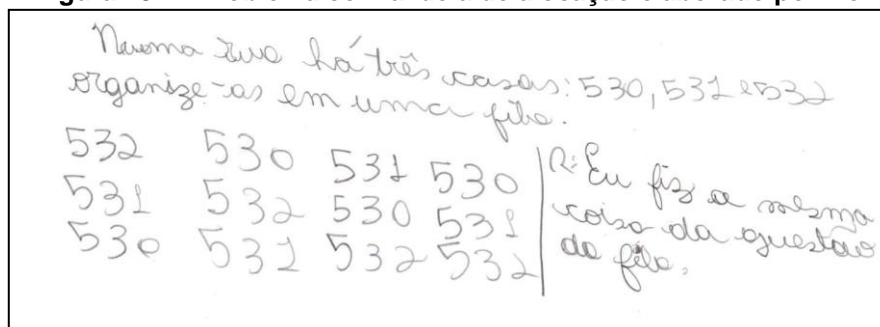 Numa rua há três casas: 530, 531 e 532
organize-as em uma fila.
532 530 531 530
531 532 530 531
530 531 532 532
R: Eu fiz a mesma
coisa da questão
da fila.